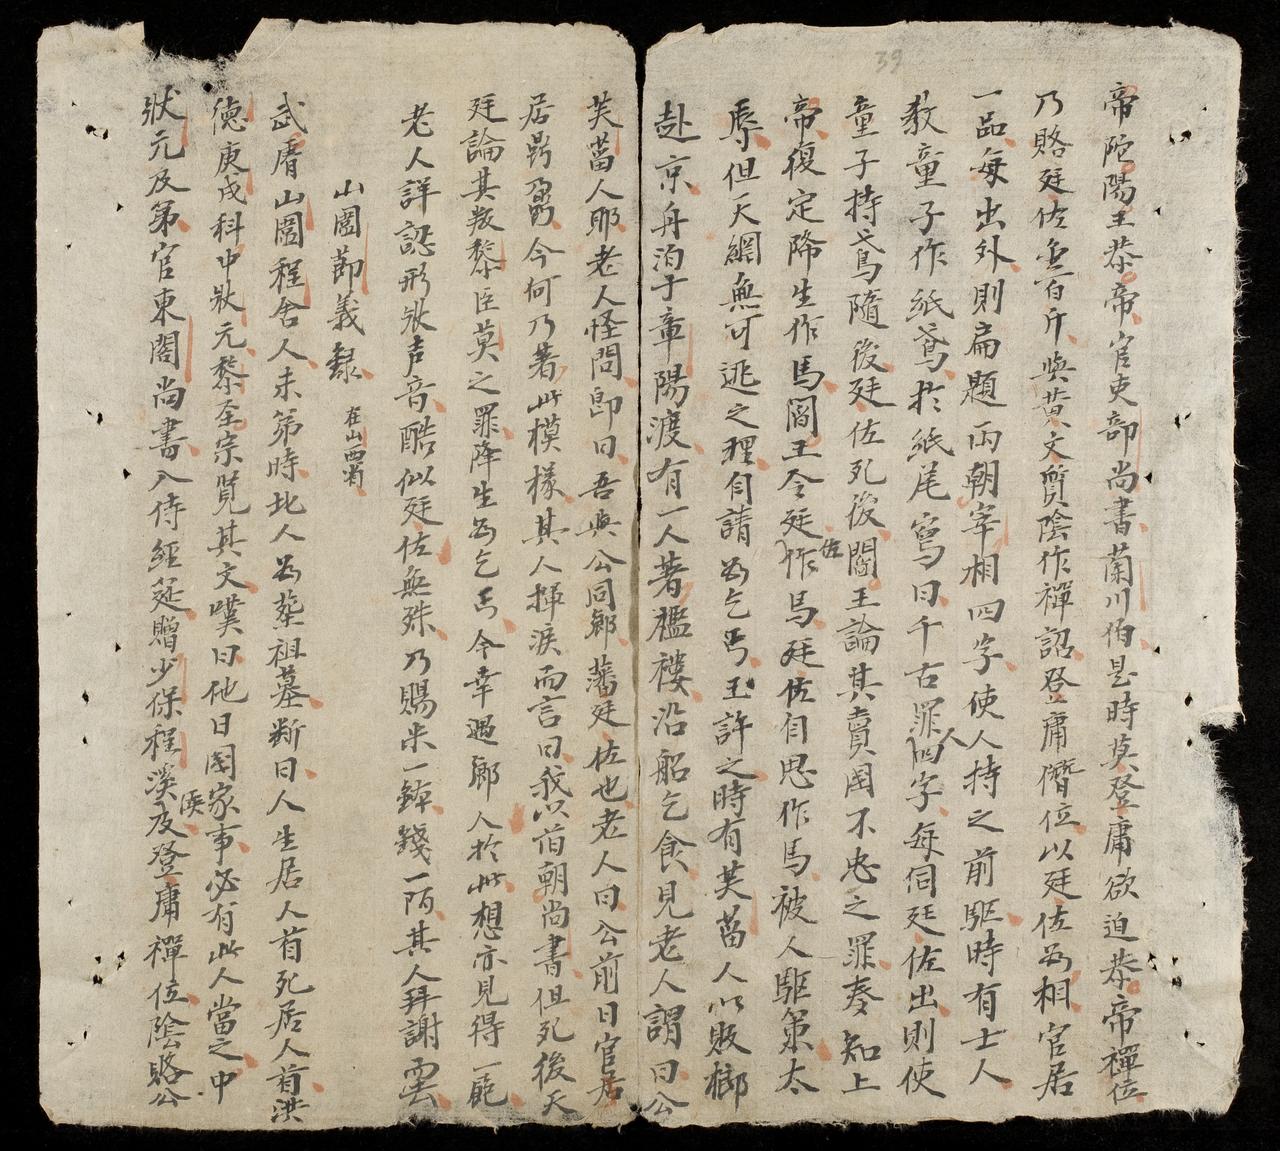 39
帝陀陽王恭帝官吏部尚書蘭川伯是時莫登庸欲迫恭帝禪位
乃賂廷佐壹百斤與黃文質陰作禪詔登庸僭位以廷佐為相官居
一品每出外則扁題兩朝宰相四字使人持之前驅時有士人
教童子作紙鳶於紙尾寫曰千古罪人四字每伺廷佐出則使
童子持鳶隨後廷佐死後閻王論其賣國不忠之罪奏知上
帝復定降生作馬閻王令廷佐作馬廷佐自思作馬被人駆策太
辱但天網無可逃之理自請為乞丐王許之時有芙蒥人以販榔
赴京舟泊于章陽渡有一人著襤褸沿船乞食見老人謂曰公
芙蒥人耶老人怪問郎曰吾與公同鄉藩廷佐也老人曰公前日官居
居鼎鼐今何乃著此模樣其人揮淚而言曰我以首朝尚書但死後天
廷論其叛黎臣莫之罪降生為乞丐今幸遇鄉人於此想亦見得一飽
老人詳認形狀声音酷似廷佐無殊乃賜米一鉢錢一陌其人拜謝云
山圍節義錄 在山西省
武厝山圍程舍人未第時北人為葬祖墓断曰人生居人首死居人首洪
德庚戌科中狀元黎圣宗覽其文嘆曰他日国家事必有此人當之中
狀元及第官東閣尚書入侍經筵贈少保程溪侯及登庸禪位陰賂公